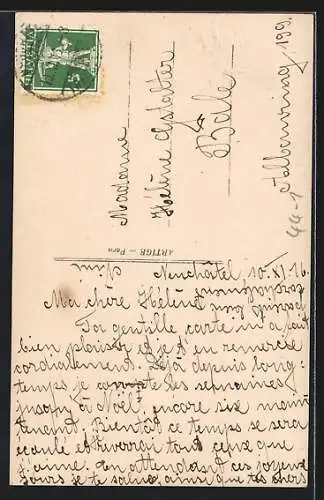 HELVETIA
Madame
Hélène Gstalter
Bâle
Allenring, 199.
44-1
ARTIGE - Para
Neuchâtel, 10. XI. 16.
Ma chère Hélène
Ta gentille carte m'a fait
bien plaisir et je t'en remercie
cordialement. Déjà depuis long-
temps je compte les semaines
jusqu'à Noël, encore six main
tenant. Bientôt ce temps se sera
écoulé et reverrai tous ceux que
j'aime. En attendant ces joyeux
jours je te salue ainsi que tes chers